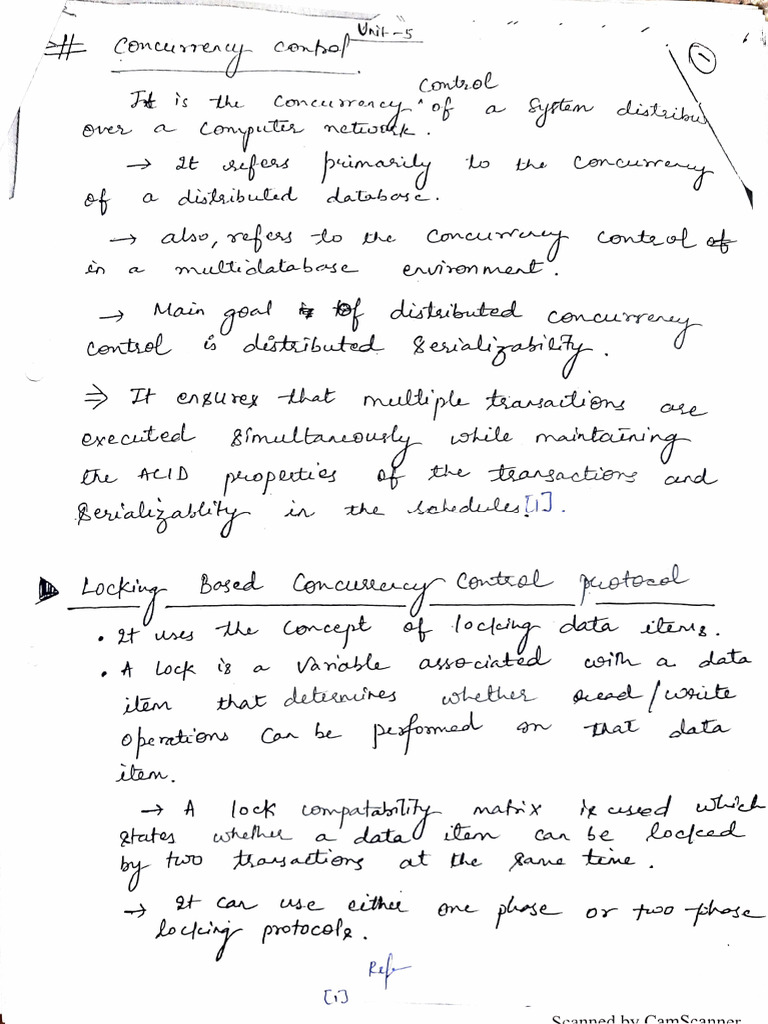 Unit-5
# Concurrency control
①
It is the concurrency control of a system distribu
over a computer network.
→ It refers primarily to the concurrency
of a distributed database.
→ also, refers to the concurrency control of
in a multidatabase environment.
→ Main goal of distributed concurrency
control is distributed serializability.
⇒ It ensures that multiple transactions are
executed simultaneously while maintaining
the ACID properties of the transactions and
serializablity in the schedules[1].
▶ Locking Based Concurrency Control protocol
• It uses the concept of locking data items.
• A lock is a variable associated with a data
item that determines whether read/write
operations can be performed on that data
item.
→ A lock compatability matrix is used which
states whether a data item can be locked
by two transactions at the same time.
→ It can use either one phase or two-phase
locking protocols.
Ref
[1]
Scanned by CamScanner